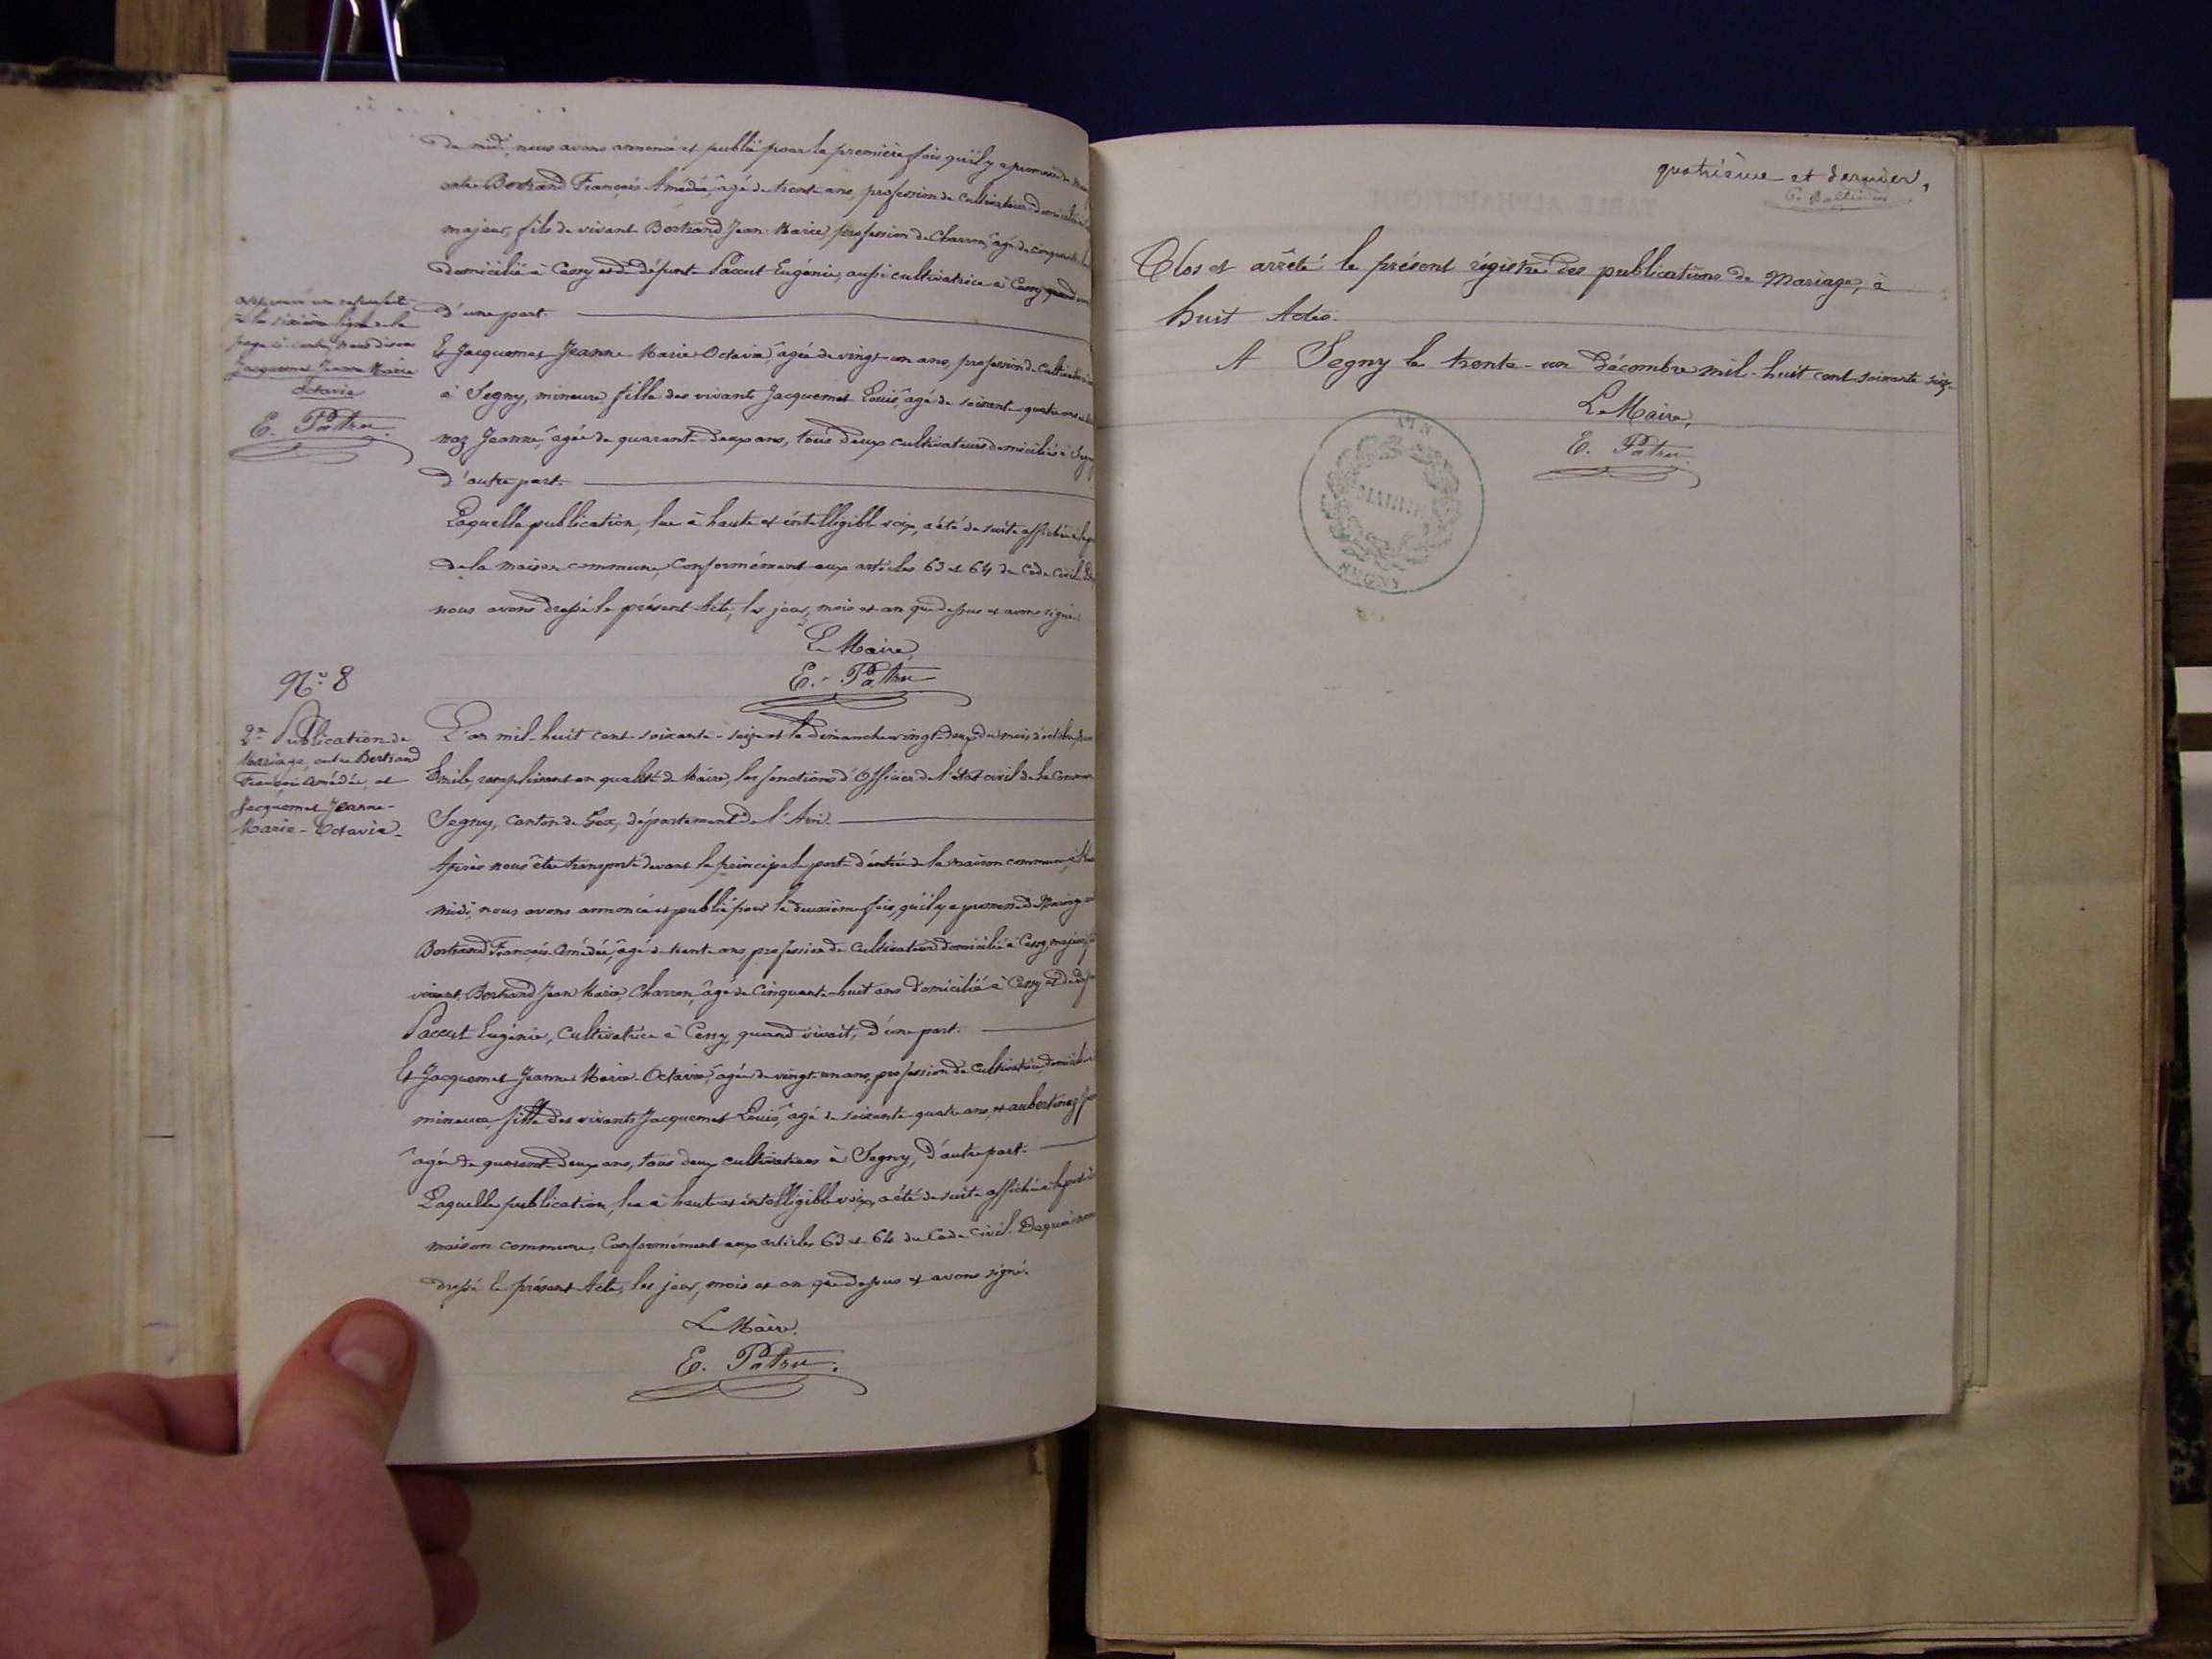 de midi, nous avons annoncé et publié pour la première fois qu'il y a promesse de
entre Bertrand François Amédée, âgé de trente ans, profession de cultivateur domicilié à
majeur, fils de vivant Bertrand Jean Marie, profession de Charron, âgé de cinquante
domicilié à Cessy et de défunte Paccut Eugénie, aussi cultivatrice à Cessy quand
d'une part.
Et Jacquemet Jeanne Marie Octavie, âgée de vingt-un ans, profession de cultivatrice
à Segny, mineure, fille des vivants Jacquemet Louis, âgé de soixante-quatre ans
naz Jeanne, âgée de quarante-deux ans, tous deux cultivateurs domiciliés à Segny
d'autre part.
Laquelle publication, lue à haute et intelligible voix, a été de suite affichée à la
de la maison commune, conformément aux articles 63 et 64 du Code civil. De
nous avons dressé le présent Acte, les jour, mois et an que dessus et avons signé.
Le Maire,
E. Patru
à la sixième ligne de la
page ci-contre, nous disons
Jacquemet Jeanne Marie
Octavie
E. Patru.
N.o 8
2.e Publication de
Mariage, entre Bertrand
François Amédée, et
Jacquemet Jeanne-
Marie-Octavie.
L'an mil-huit cent-soixante-seize et le dimanche vingt-deux du mois d'octobre,
Emile, remplissant en qualité de Maire, les fonctions d'Officier de l'état civil de la Commune
Segny, canton de Gex, département de l'Ain.
Après nous être transporté devant la principale porte d'entrée de la maison commune, à
midi, nous avons annoncé et publié pour la deuxième fois, qu'il y a promesse de Mariage
Bertrand François Amédée, âgé de trente ans, profession de Cultivateur domicilié à Cessy, majeur,
vivant, Bertrand Jean Marie, Charron, âgé de Cinquante-huit ans domicilié à Cessy et de
Paccut Eugénie, Cultivatrice à Cessy, quand vivait, d'une part.
Et Jacquemet Jeanne Marie-Octavie, âgée de vingt-un ans, profession de cultivatrice, domiciliée
mineure, fille des vivants Jacquemet Louis, âgé de soixante-quatre ans, et aubertinaz
âgée de quarante-deux ans, tous deux cultivateurs à Segny, d'autre part.
Laquelle publication, lue à haute et intelligible voix, a été de suite affichée à la porte
maison commune, Conformément aux articles 63 et 64 du Code civil. De quoi nous
dressé le présent Acte, les jour, mois et an que dessus et avons signé.
Le Maire.
E. Patru.
quatrième et dernier,
Clos et arrêté le présent régistre des publications de Mariage, à
huit Actes.
A Segny le trente-un décembre mil-huit cent soixante seize.
Le Maire,
E. Patru.
AIN
MAIRIE
SEGNY